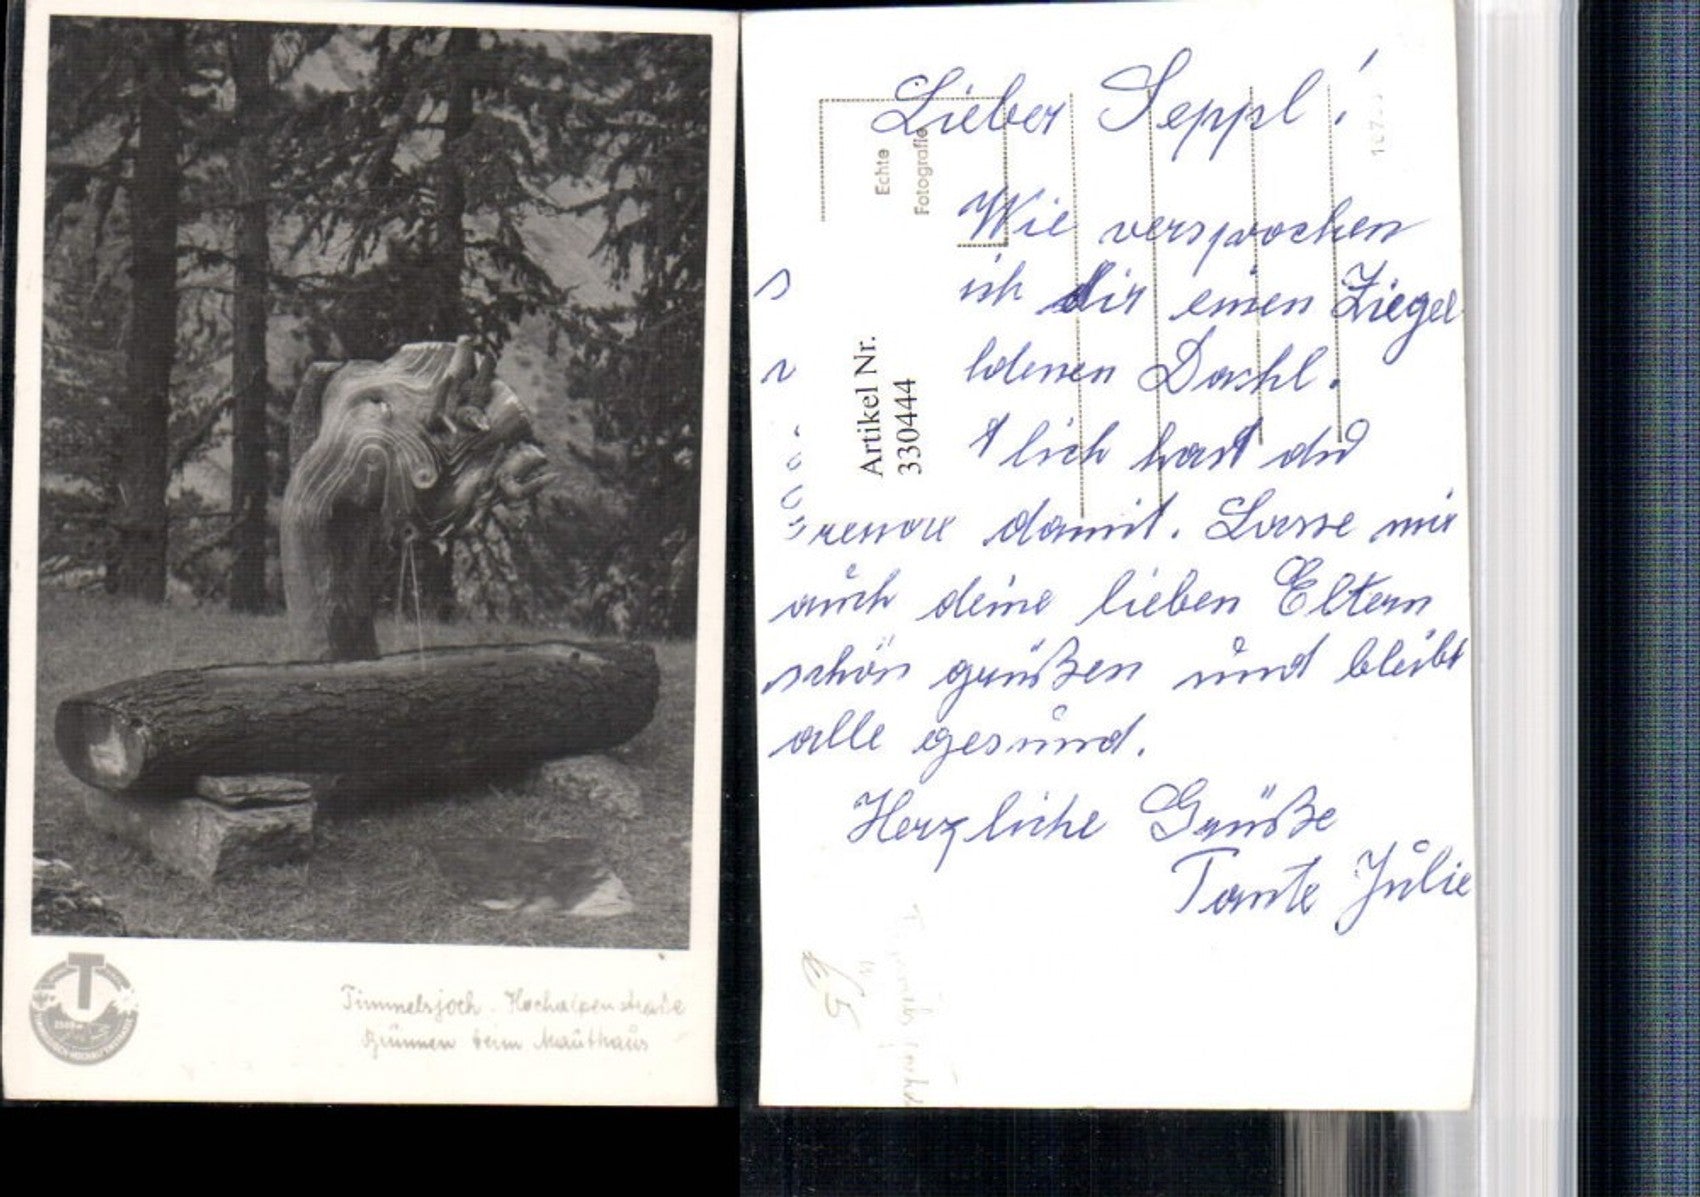 T
TIMMELSJOCH-HOCHALPENSTRASSE
Timmelsjoch - Hochalpenstraße
Brunnen beim Mauthaus
Lieber Seppl!
Echte
Fotografie
Wie versprochen
ich dir einen Ziegel
Artikel Nr.
330444
denen Dachl.
lich hast du
damit. Lasse mir
auch deine lieben Eltern
schön grüßen und bleibt
alle gesund.
Herzliche Grüße
Tante Julie